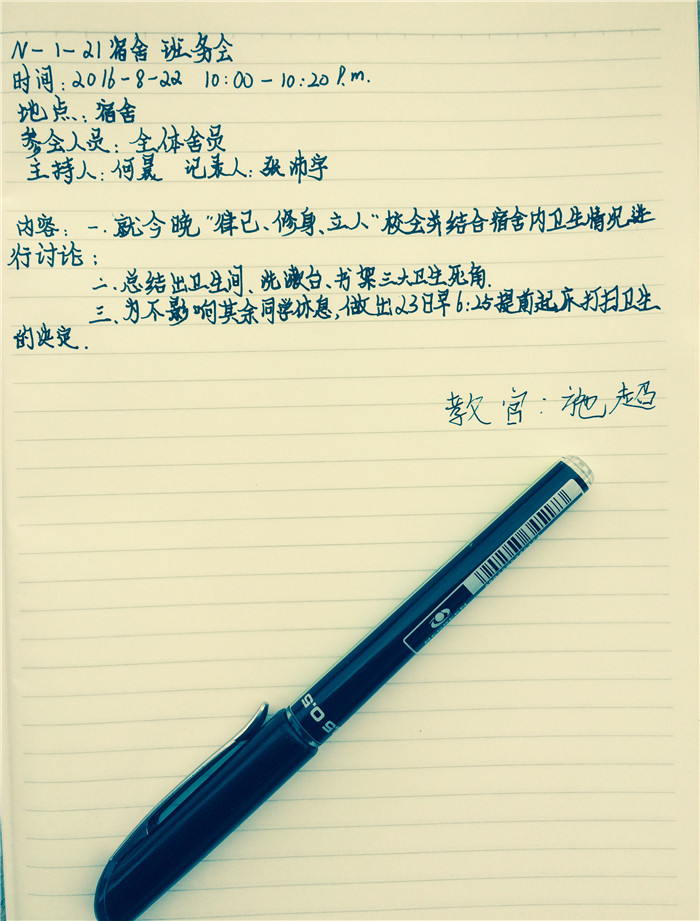 N-1-21宿舍 班务会
时间:2016-8-22 10:00-10:20 P.m.
地点:宿舍
参会人员:全体舍员
主持人:何晟 记录人:张沛宇
内容:一.就今晚“律己、修身、立人”校会并结合宿舍内卫生情况进
行讨论;
二.总结出卫生间、洗漱台、书架三大卫生死角.
三、为不影响其余同学休息,做出23日早6:25提前起床打扫卫生
的决定.
教官:施超
0.5